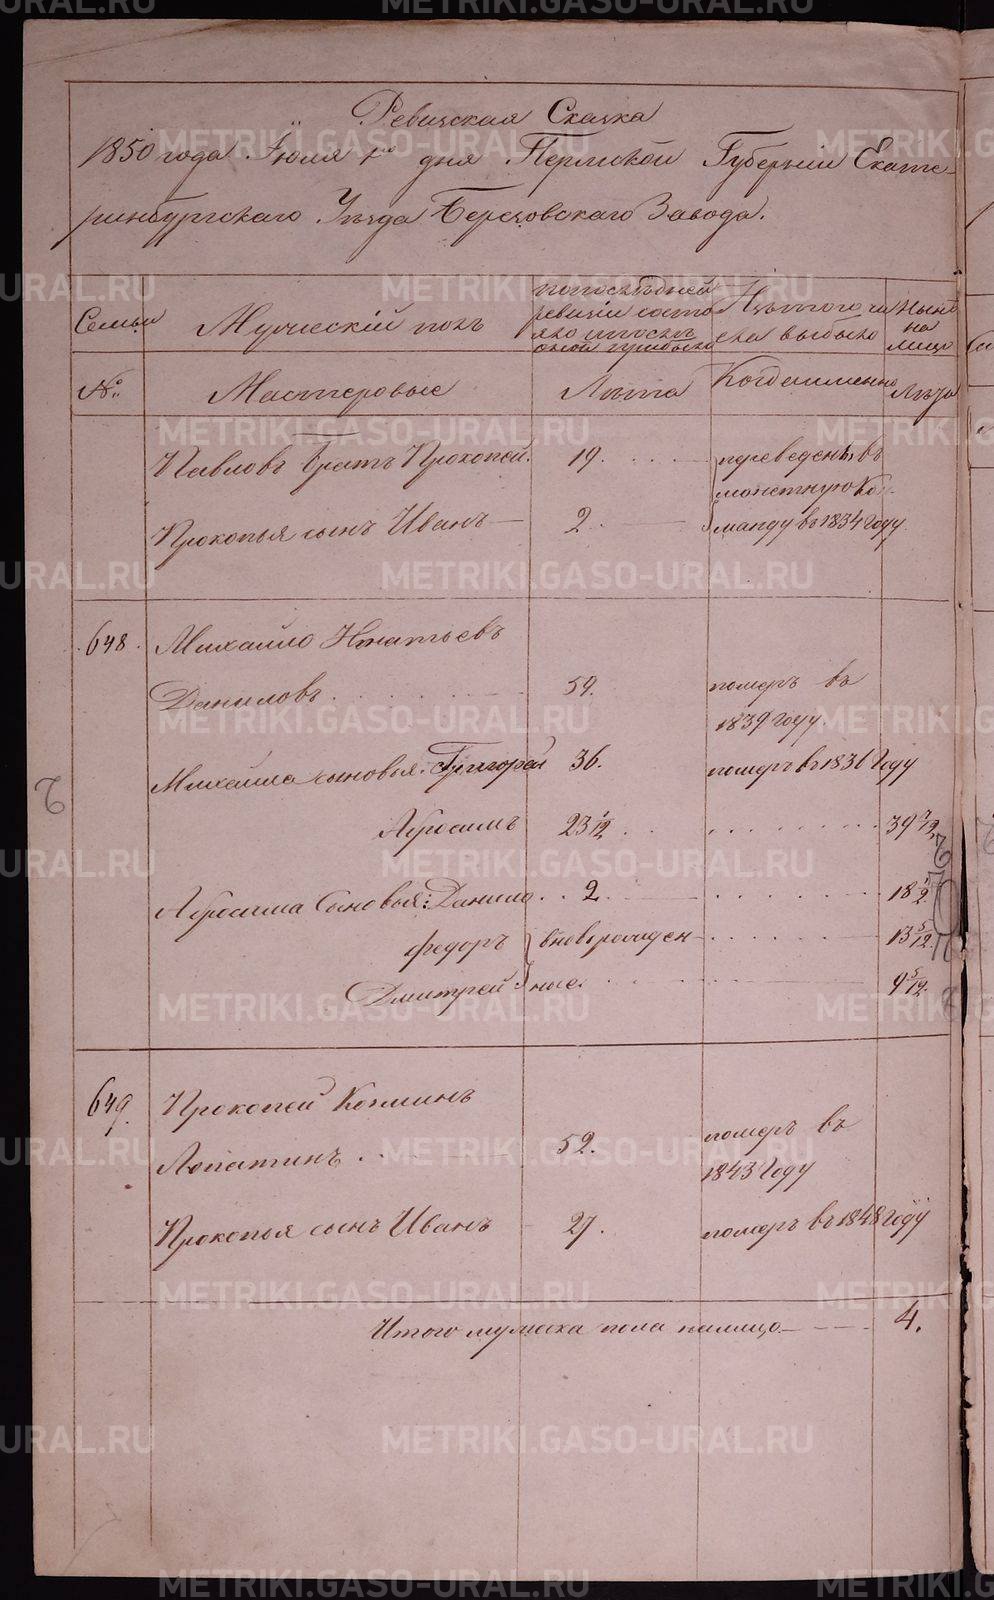 Ревизская Сказка
1850 года Іюля 1го дня Пермской Губерніи Екате-
ринбургскаго Уезда Березовскаго Завода.
Семьи
Мужескій полъ
по последней ревизіи состояло и после оной прибыло
Изъ того числа выбыло
Ныне на лицо
№:
Мастеровые
Лета
Когда именно
Лета
Павловъ братъ Прокопей. 19. переведены въ
монетную Ко-
Прокопья сынъ Иванъ 2 манду въ 1834 году.
648. Михайло Игнатьевъ
Даниловъ 59. померъ въ
1839 году.
Михайла сыновья: Григорей 36. померъ въ 1836 году
Абросимъ 23 1/12 39 7/12
Абросима Сыновья: Данило 2 18 1/2
Федоръ вновьрожден- 13 5/12.
Дмитрей ные. 4 5/12.
649. Прокопей Козминъ
Лопатинъ 52. померъ въ
1843 году
Прокопья сынъ Иванъ 27. померъ въ 1848 году
Итого мужеска пола налицо 4.
METRIKI.GASO-URAL.RU